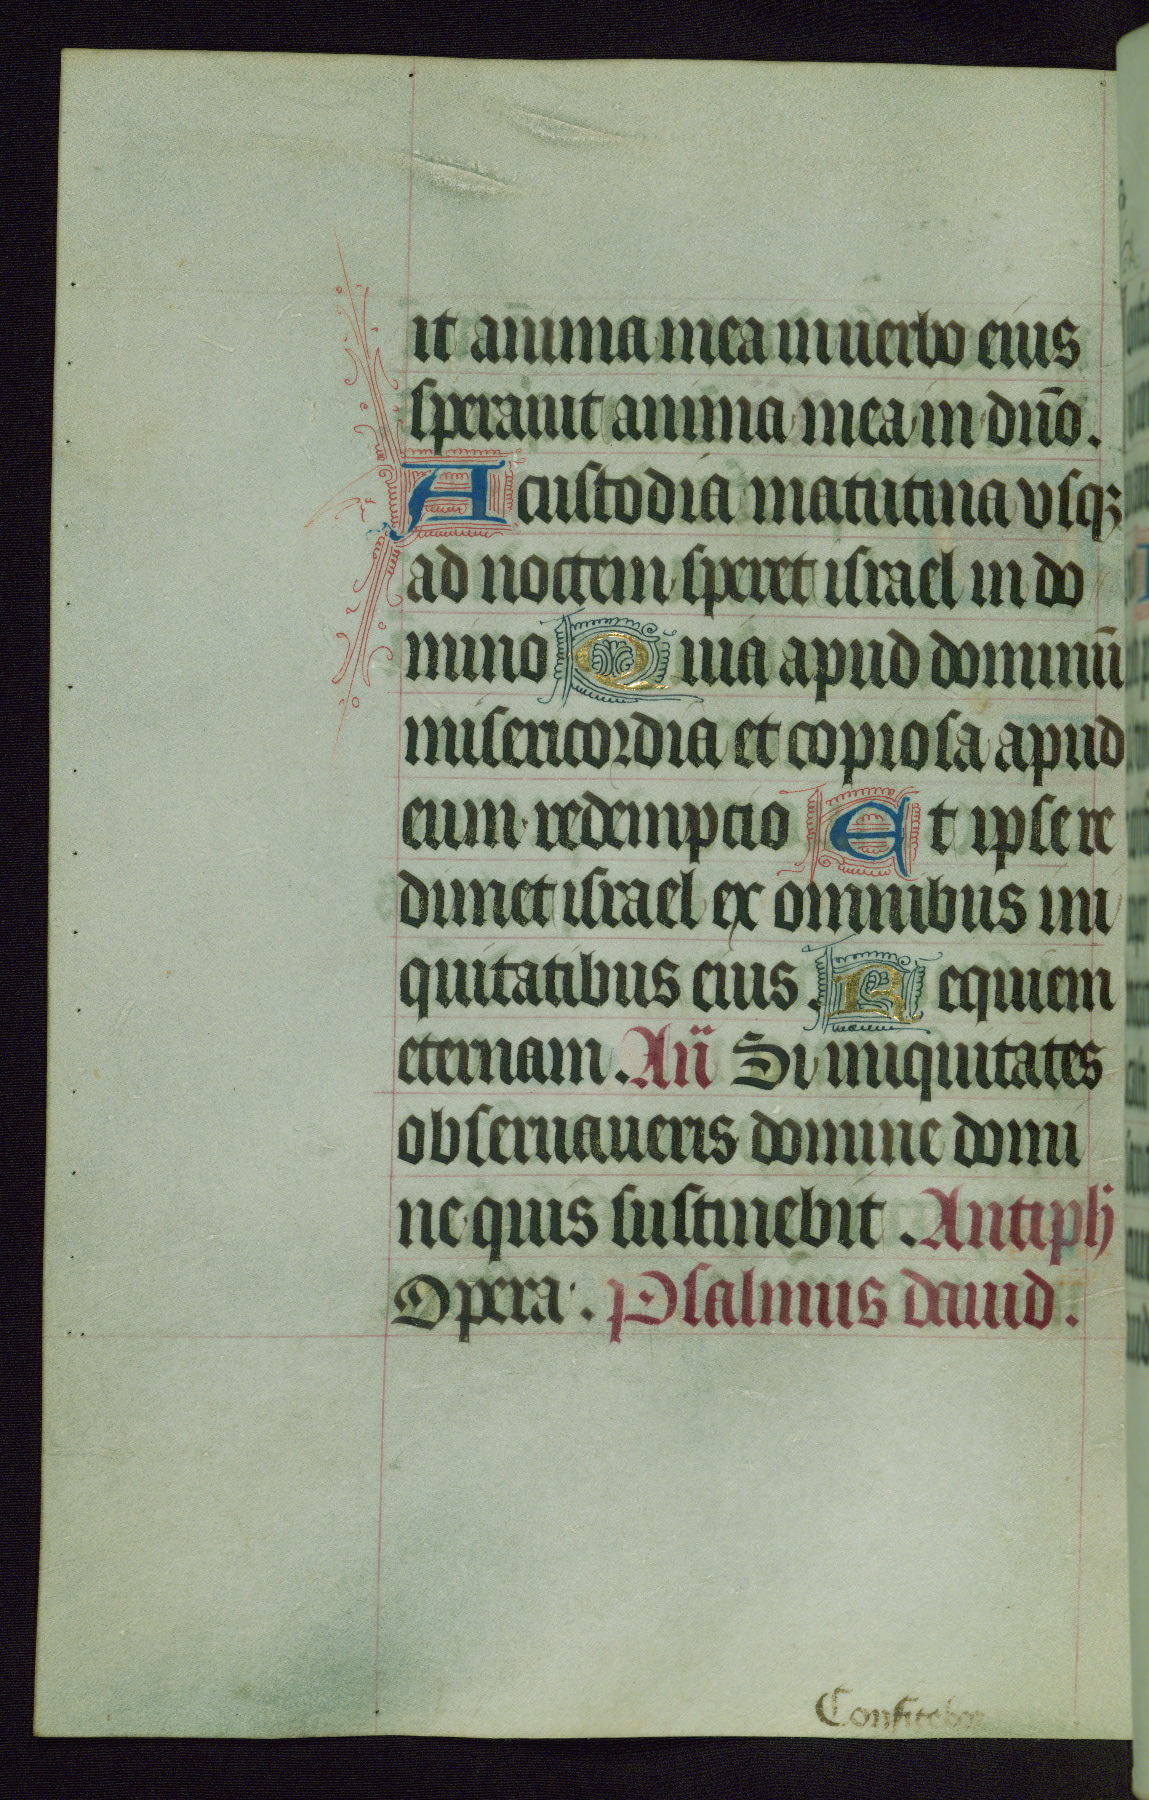 it anima mea in uerbo eius
sperauit anima mea in dn̄o.
A custodia matutina vsqꝫ
ad noctem speret israel in do
mino Quia apud dominū
misericordia et copiosa apud
eum redempcio Et ipse re
dimet israel ex omnibus ini
quitatibus eius. Requiem
eternam. An̄ Si iniquitates
obseruaueris domine domi
ne quis sustinebit. Antiph
Opera. Psalmus dauid.
Confitebor